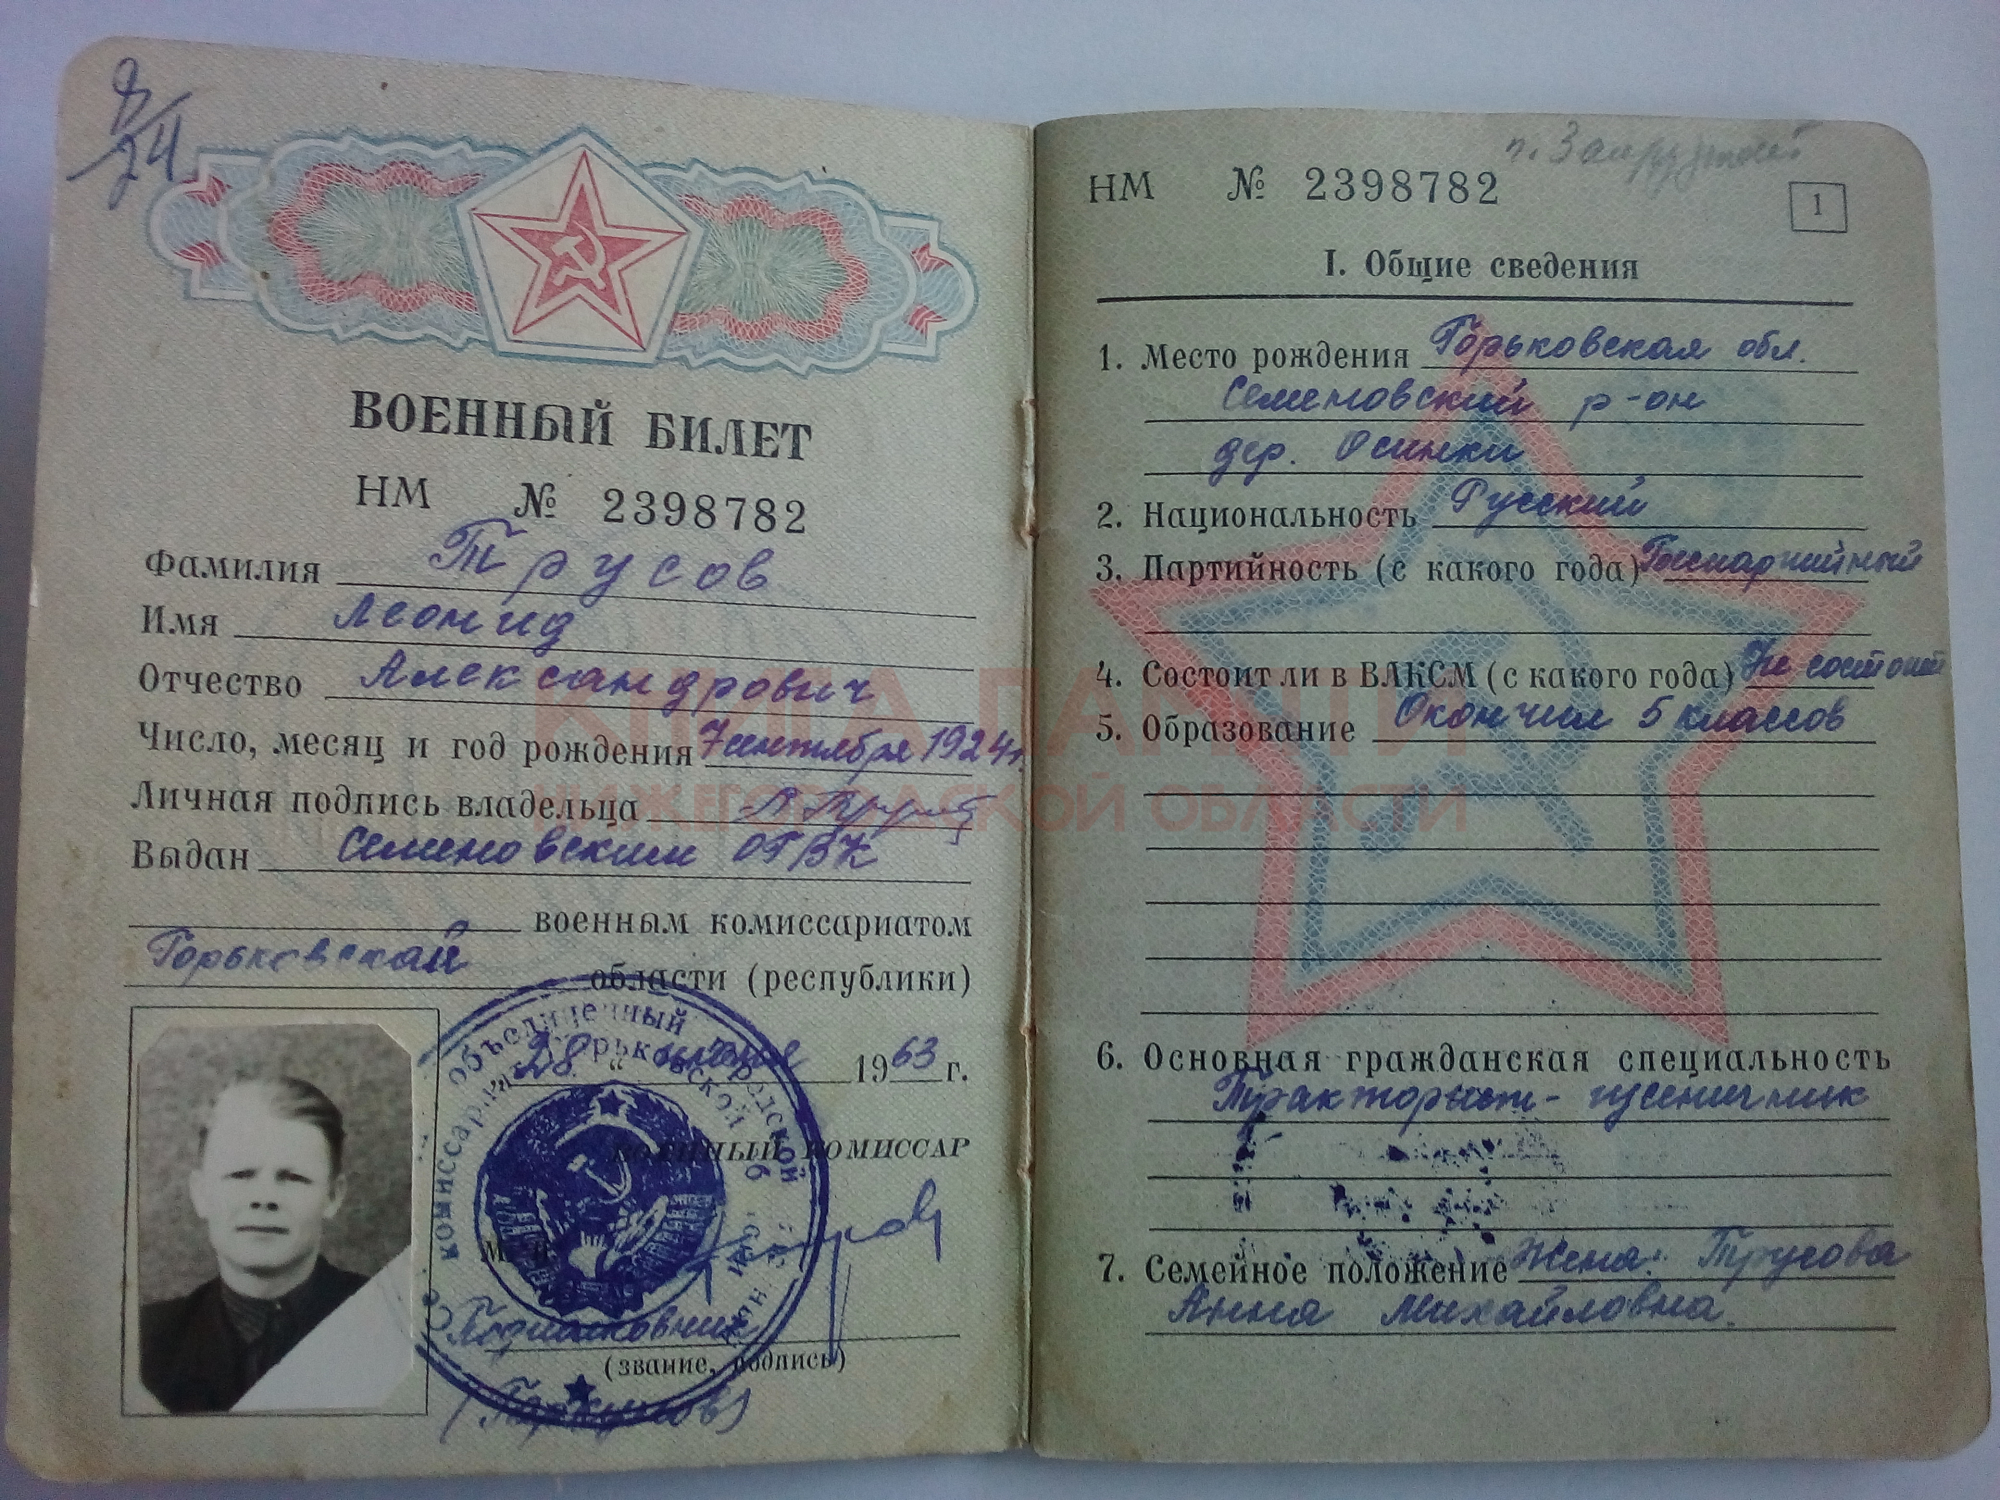 8/24
ВОЕННЫЙ БИЛЕТ
НМ № 2398782
Фамилия Трусов
Имя Леонид
Отчество Александрович
Число, месяц и год рождения 7 сентября 1924 г.
Личная подпись владельца
Выдан Семеновским ОГВК
военным комиссариатом
Горьковской области (республики)
"28" 1963 г.
ВОЕННЫЙ КОМИССАР
М. П.
Подполковник
(звание, подпись)
объединенный городской
Горьковской
комиссариат
КНИГА ПАМЯТИ
НИЖЕГОРОДСКОЙ ОБЛАСТИ
НМ № 2398782
1
I. Общие сведения
1. Место рождения Горьковская обл.
Семеновский р-он
дер. Осинки
2. Национальность Русский
3. Партийность (с какого года) Беспартийный
4. Состоит ли в ВЛКСМ (с какого года) Не состоит
5. Образование Окончил 5 классов
6. Основная гражданская специальность
Тракторист-гусеничник
7. Семейное положение Жена: Трусова
Анна Михайловна.